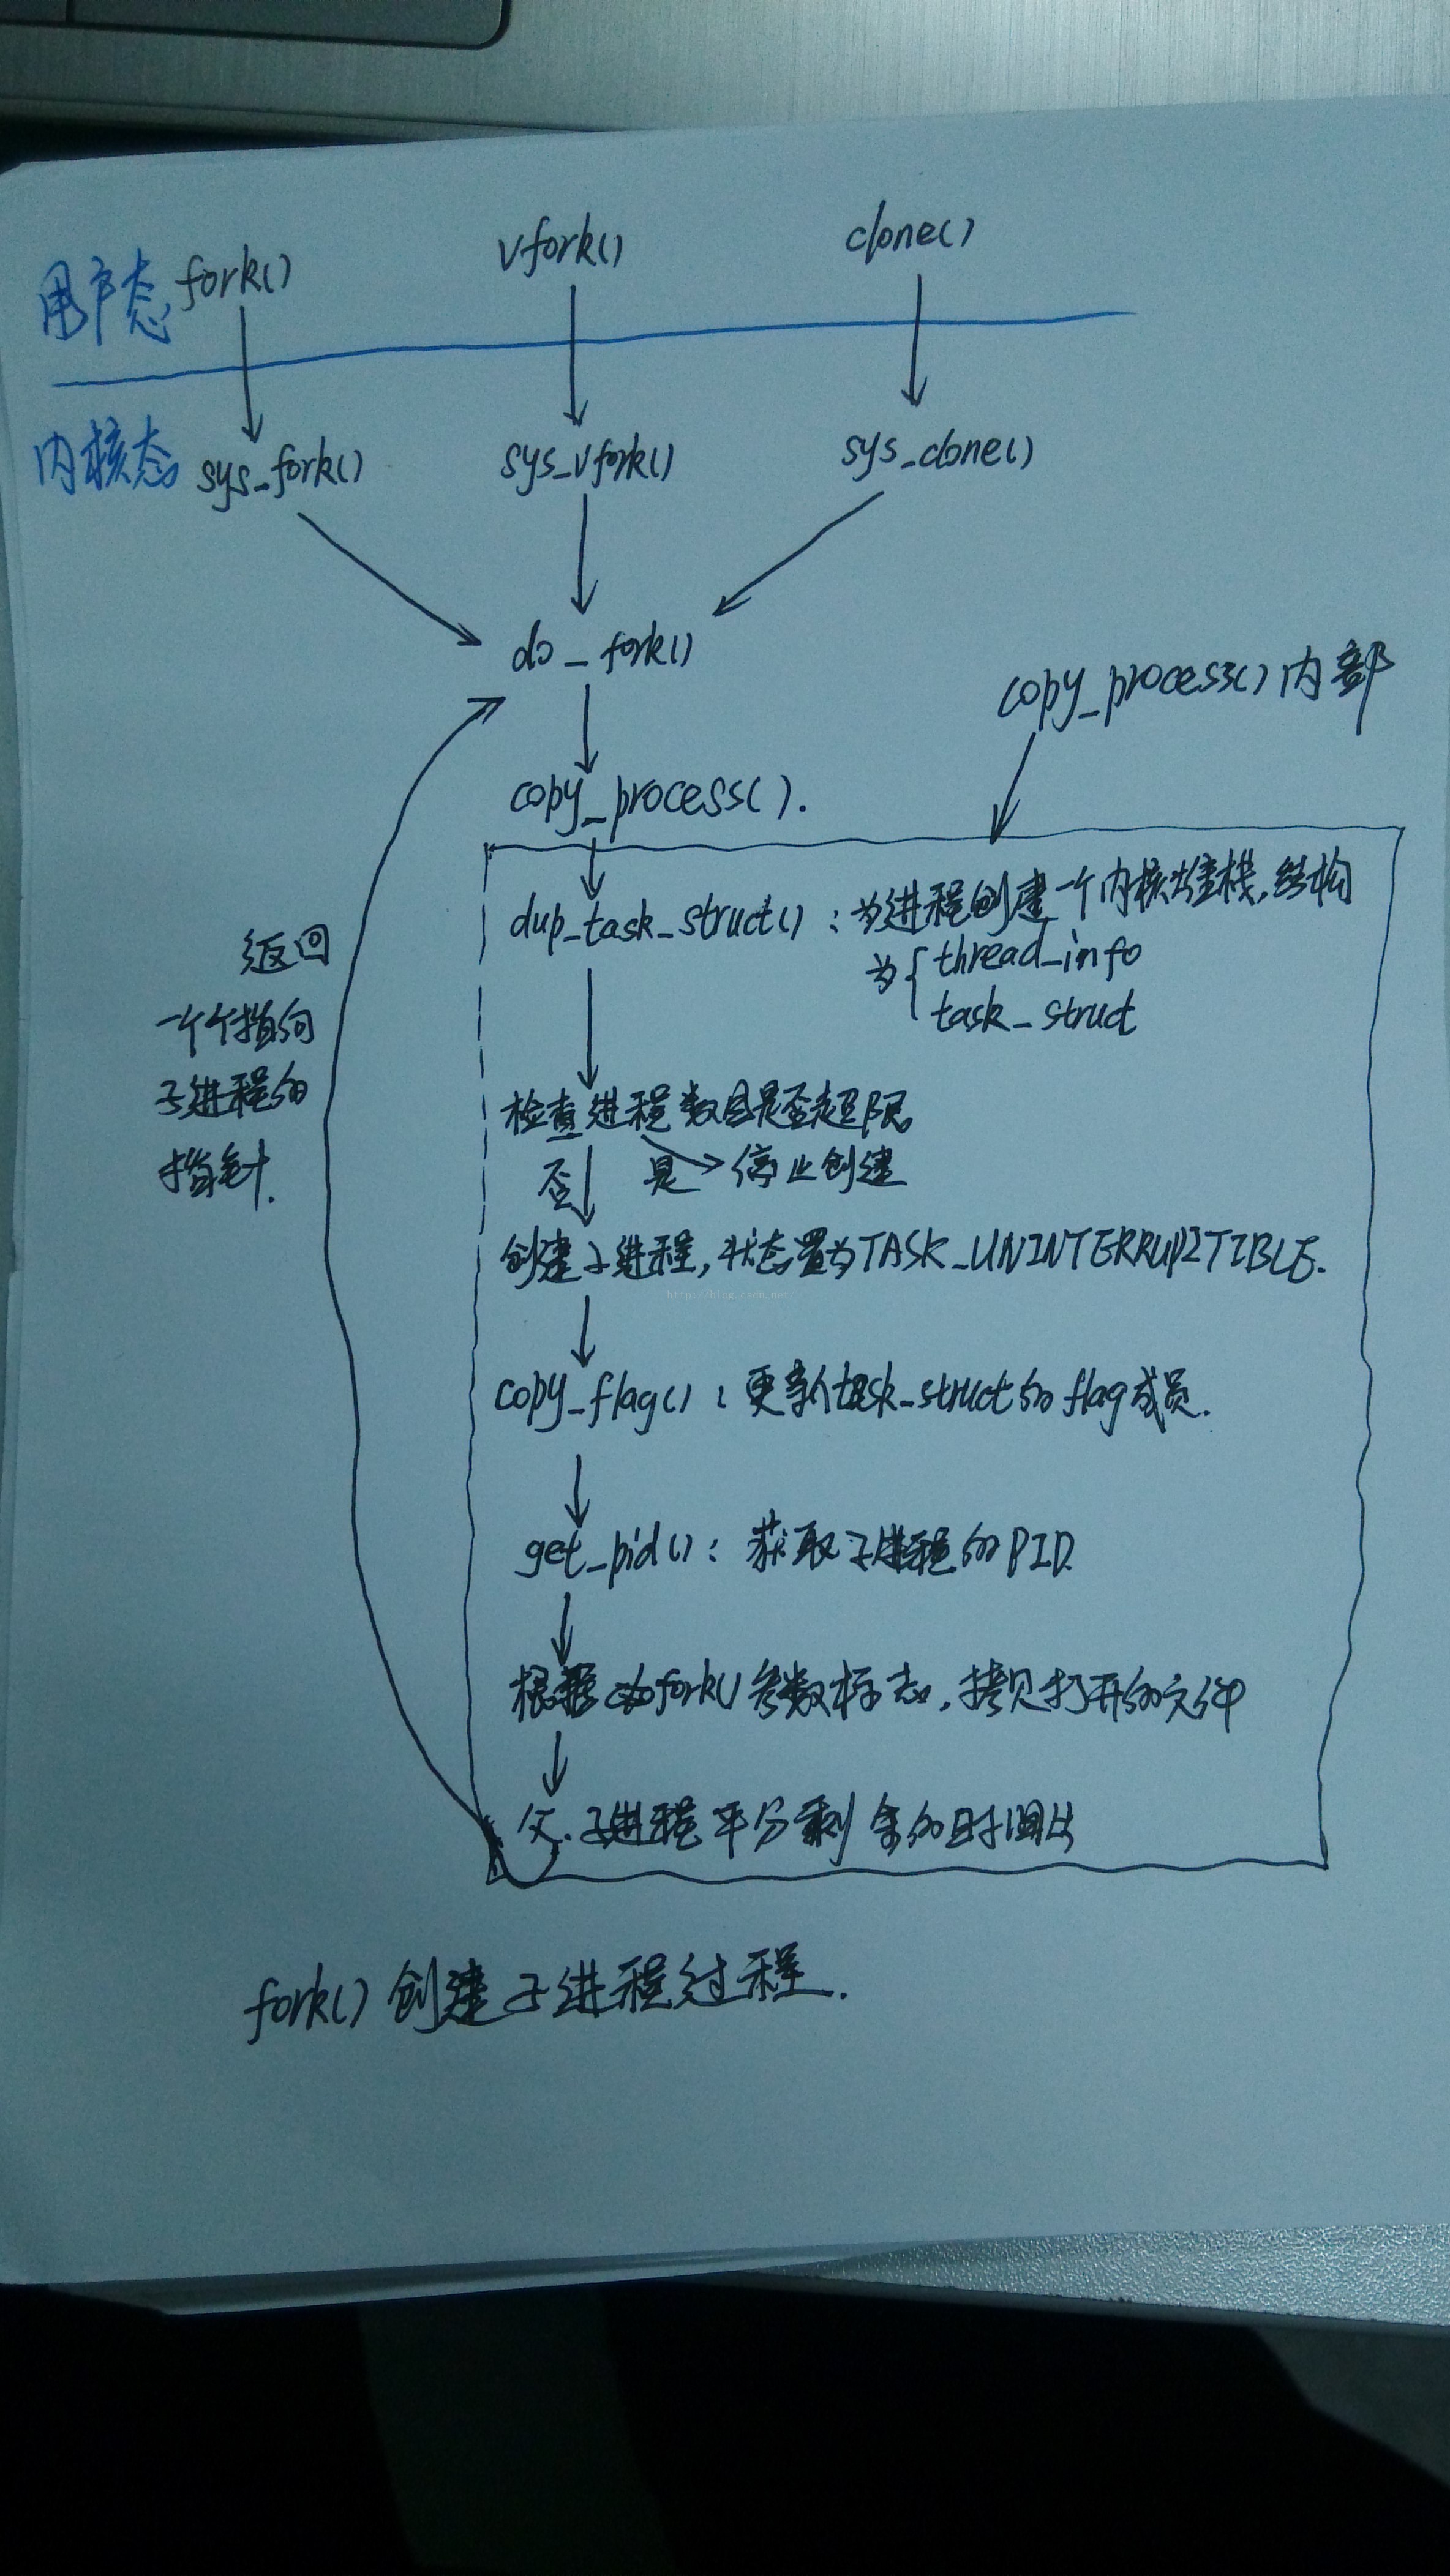 vfork()
clone()
用户态 fork()
内核态 sys_fork()
sys_vfork()
sys_clone()
do_fork()
copy_process()内部
copy_process().
dup_task_struct() : 为进程创建一个内核堆栈,结构
为{ thread_info
task_struct
返回
一个个指向
子进程的
指针.
检查进程数目是否超限。
否 是→停止创建
创建子进程,状态置为TASK_UNINTERRUPTIBLE.
http://blog.csdn.net
copy_flag() : 更新task_struct的flag成员.
get_pid() : 获取子进程的PID
根据 fork()参数标志,拷贝打开的文件
父.子进程平分剩余的时间片
fork()创建子进程过程.